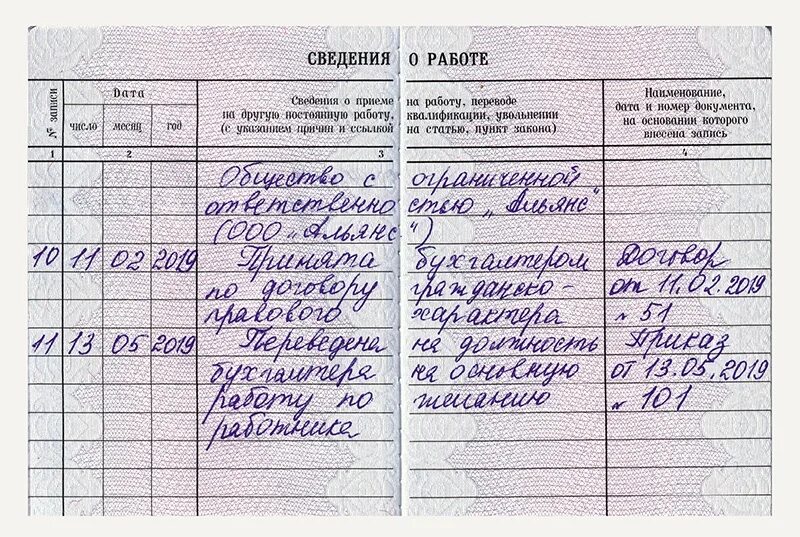 СВЕДЕНИЯ О РАБОТЕ
№ записи
Дата
число
месяц
год
Сведения о приеме на работу, переводе
на другую постоянную работу, квалификации, увольнении
(с указанием причин и ссылкой на статью, пункт закона)
Наименование,
дата и номер документа,
на основании которого
внесена запись
1 2 3 4
Общество с ограниченной
ответственностью „Альянс"
(ООО „Альянс")
10 11 02 2019 Принята бухгалтером Договор
по договору гражданско- от 11.02.2019
правового характера № 51
11 13 05 2019 Переведена на должность Приказ
бухгалтера на основную от 13.05.2019
работу по желанию № 101
работника